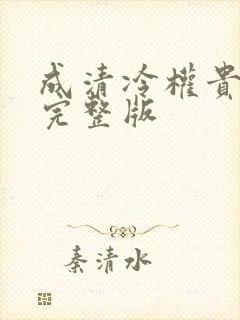 成清冷權貴
完整版
秦清水